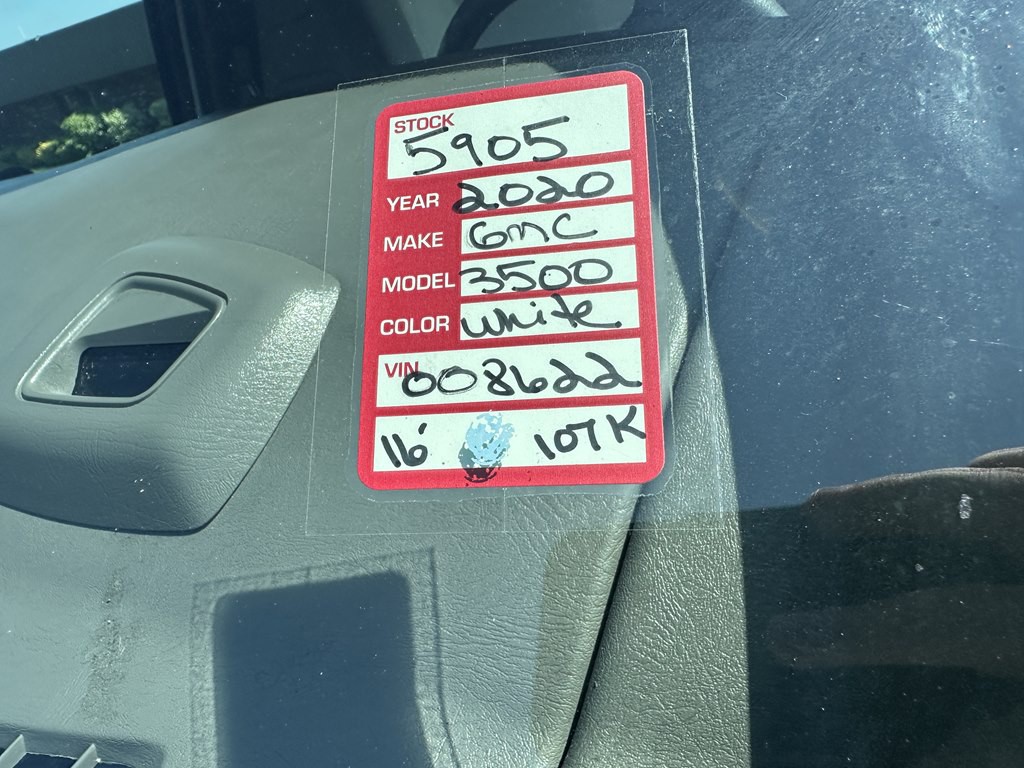 STOCK
5905
YEAR 2020
MAKE GMC
MODEL 3500
COLOR White
VIN
008622
16' 107K